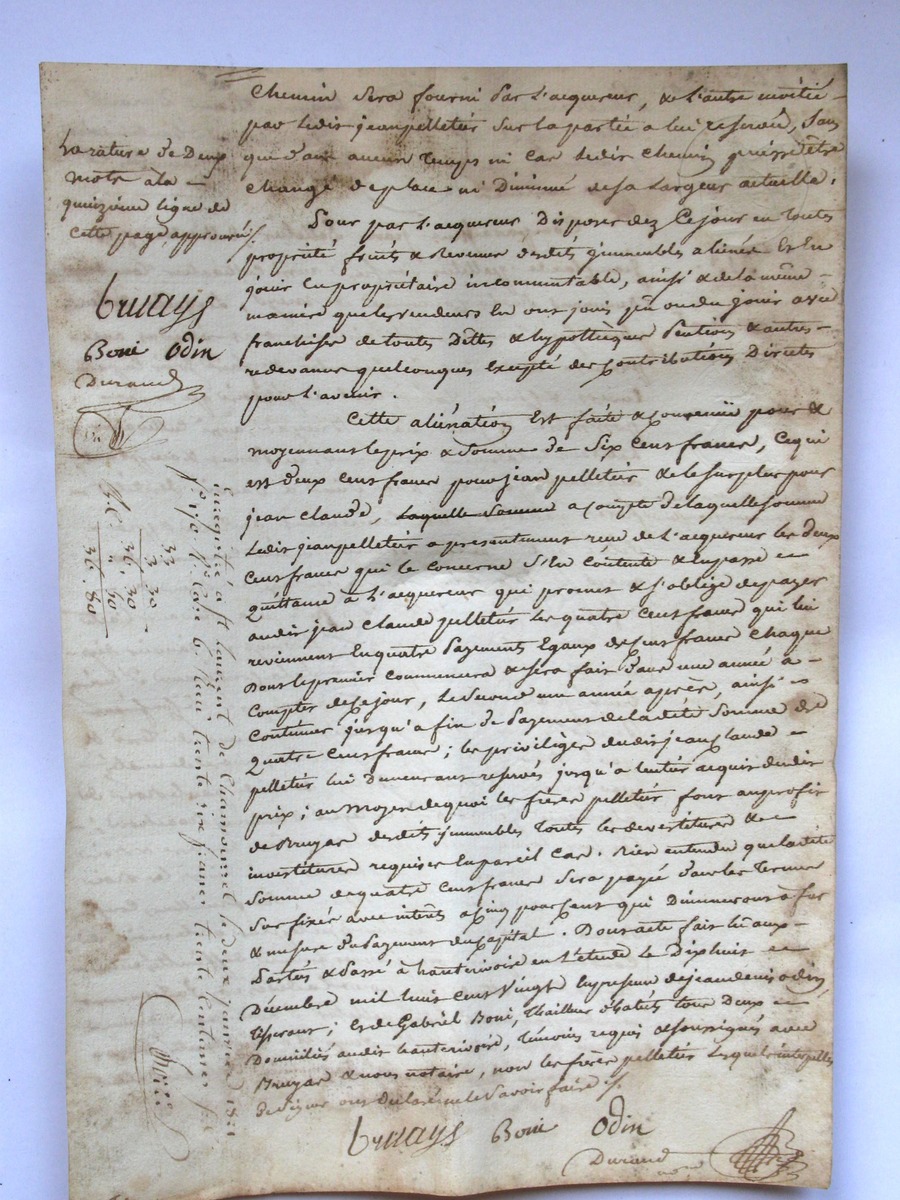 chemin sera fourni par l'acquereur, & l'autre moitié
par ledit jean pelletier sur la partie a lui reservée, sans
que dans aucun temps ni cas ledit chemin puisse être
changé de place ni Diminué de sa Largeur actuelle.
Pour par l'acquereur Disposer dez Ce jour en toutes
propriété fruits & Revenus desdits immeubles aliénés Et En
jouir En propriétaire incommutable, ainsi & de la même
maniere que les vendeurs En ont joui pu ou du jouir avec
franchise de toutes Dettes & hypothèques Pentions & autres
redevances quelconques Excepté des Contributions Directes
pour l'avenir.
Cette aliénation Est faite & convenüe pour &
moyennant le prix & somme de Six Cens francs, Ce qui
est deux Cens francs pour jean pelletier & le surplus pour
jean Claude, Laquelle Somme a Compte de laquelle somme
Ledit jean pelletier a présentement reçu de l'acquereur les deux
Cens francs qui le concerne S'En Contente & En passe
Quittance à l'acquereur qui promet & s'oblige de payer
audit jean Claude pelletier Les quatre Cens francs qui lui
reviennent En quatre Payements Egaux de Cens francs Chaque
Dont le premier commencera & sera fait dans une année à
Compter de Ce jour, Le Second une année après, ainsi
Continuer jusqu'à fin de Payement de la dite Somme de
Quatre Cens francs; les privilèges dudit jean Claude
pelletier lui Demeurant reservés jusqu'à l'entier acquit dudit
prix; au Moyen de quoi les frères pelletier font au profit
de Bruyas desdits immeubles toutes les devestitures &
investitures requises En pareil Cas. Bien entendu que la dite
Somme de quatre Cens francs Sera payée dans les Termes
Sus fixés avec intérêts a Cinq pour Cent qui Diminueront à fur
& mesure du Payement du Capital. Dont acte fait lû aux
Parties & Passé à hauterivoire en l'étude Le Dix huit
Décembre mil huit Cent Vingt En présence de jean denis odin,
Tisserant; Et de Gabriel Boni, Tailleur d'habits tous Deux
Domiciliés audit hauterivoire, Témoins requis & soussignés avec
Bruyas & nous notaire, non les frères pelletier Lesquels interpellés
de signer ont déclaré ne le Savoir faire.
bruays Boni Odin
Durand
La rature de Deux
mots a la
quinzième ligne de
cette page, approuvée
bruays
Boni Odin
Durand
33
3. 30
36. 30
" 60
36. 80
Enregistré a St laurent de Chamousset le deux janvier 1821
trente six francs trente centimes